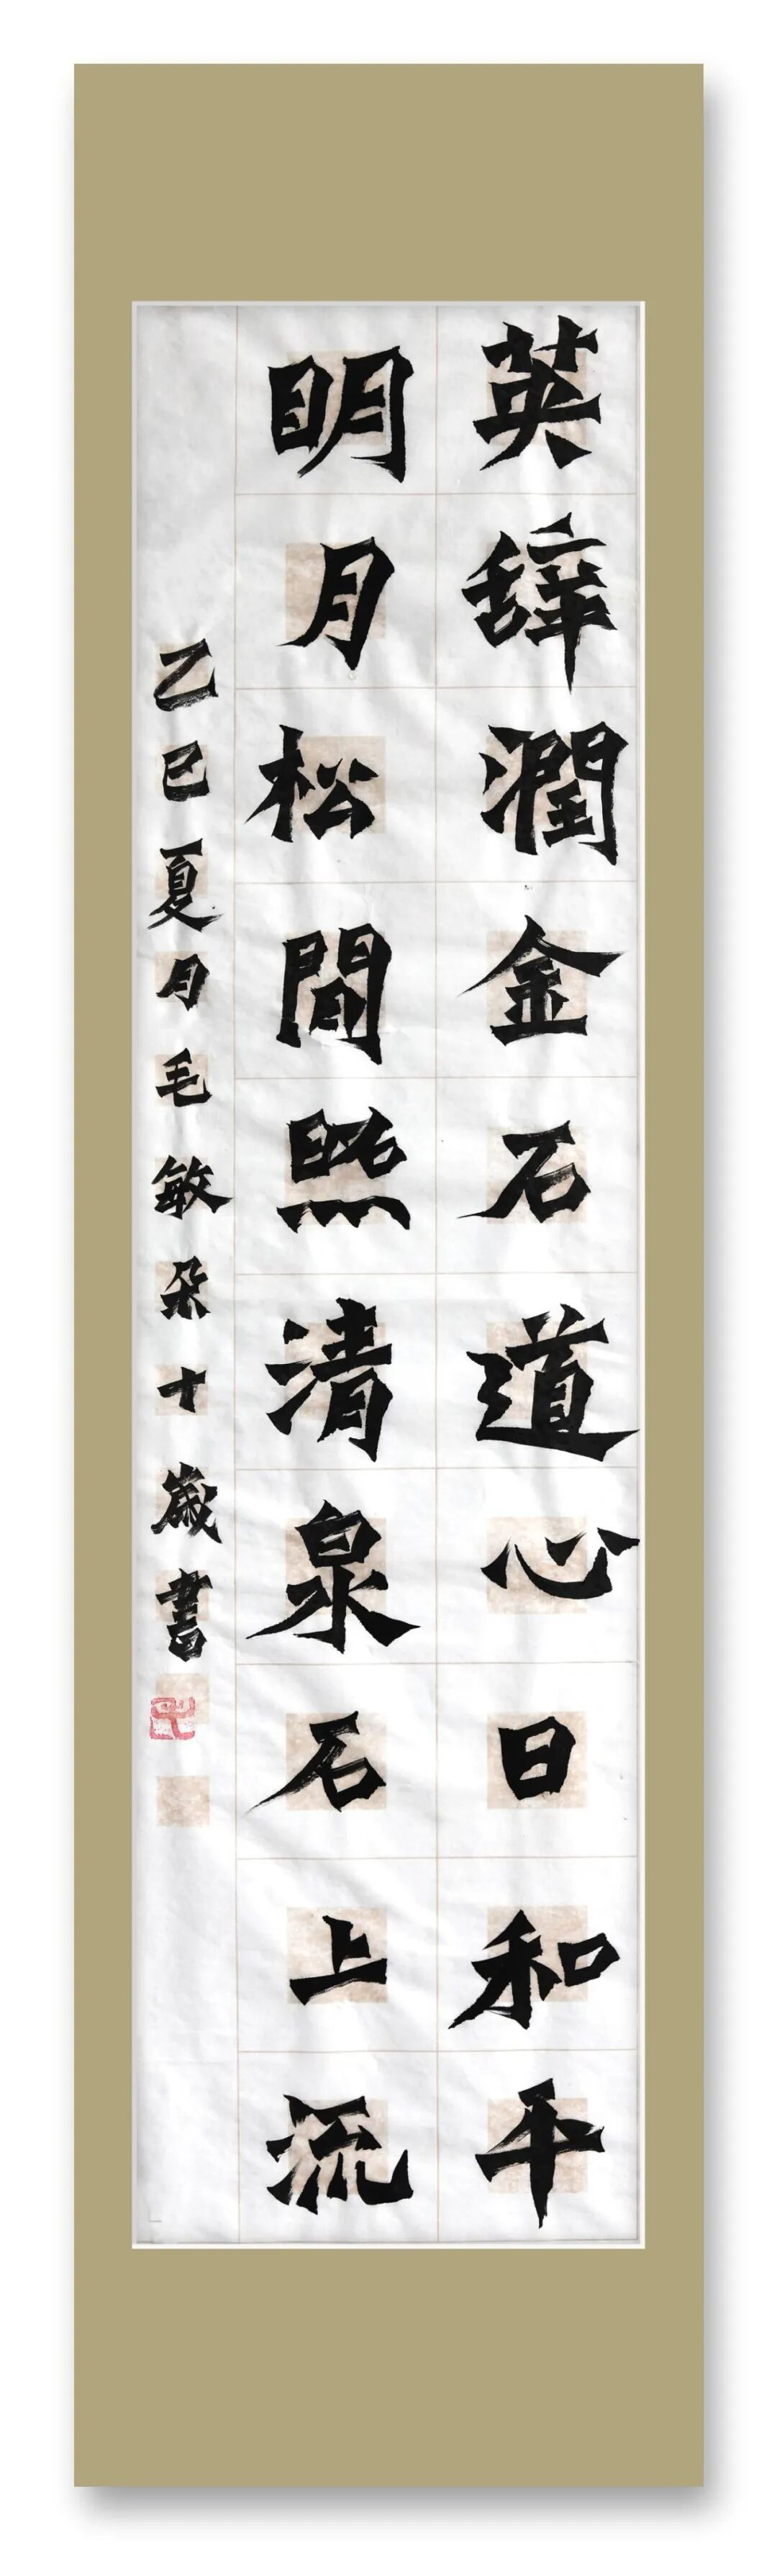 英辞潤金石道心日和平
明月松間照清泉石上流
乙巳夏月毛敏朵十歲書